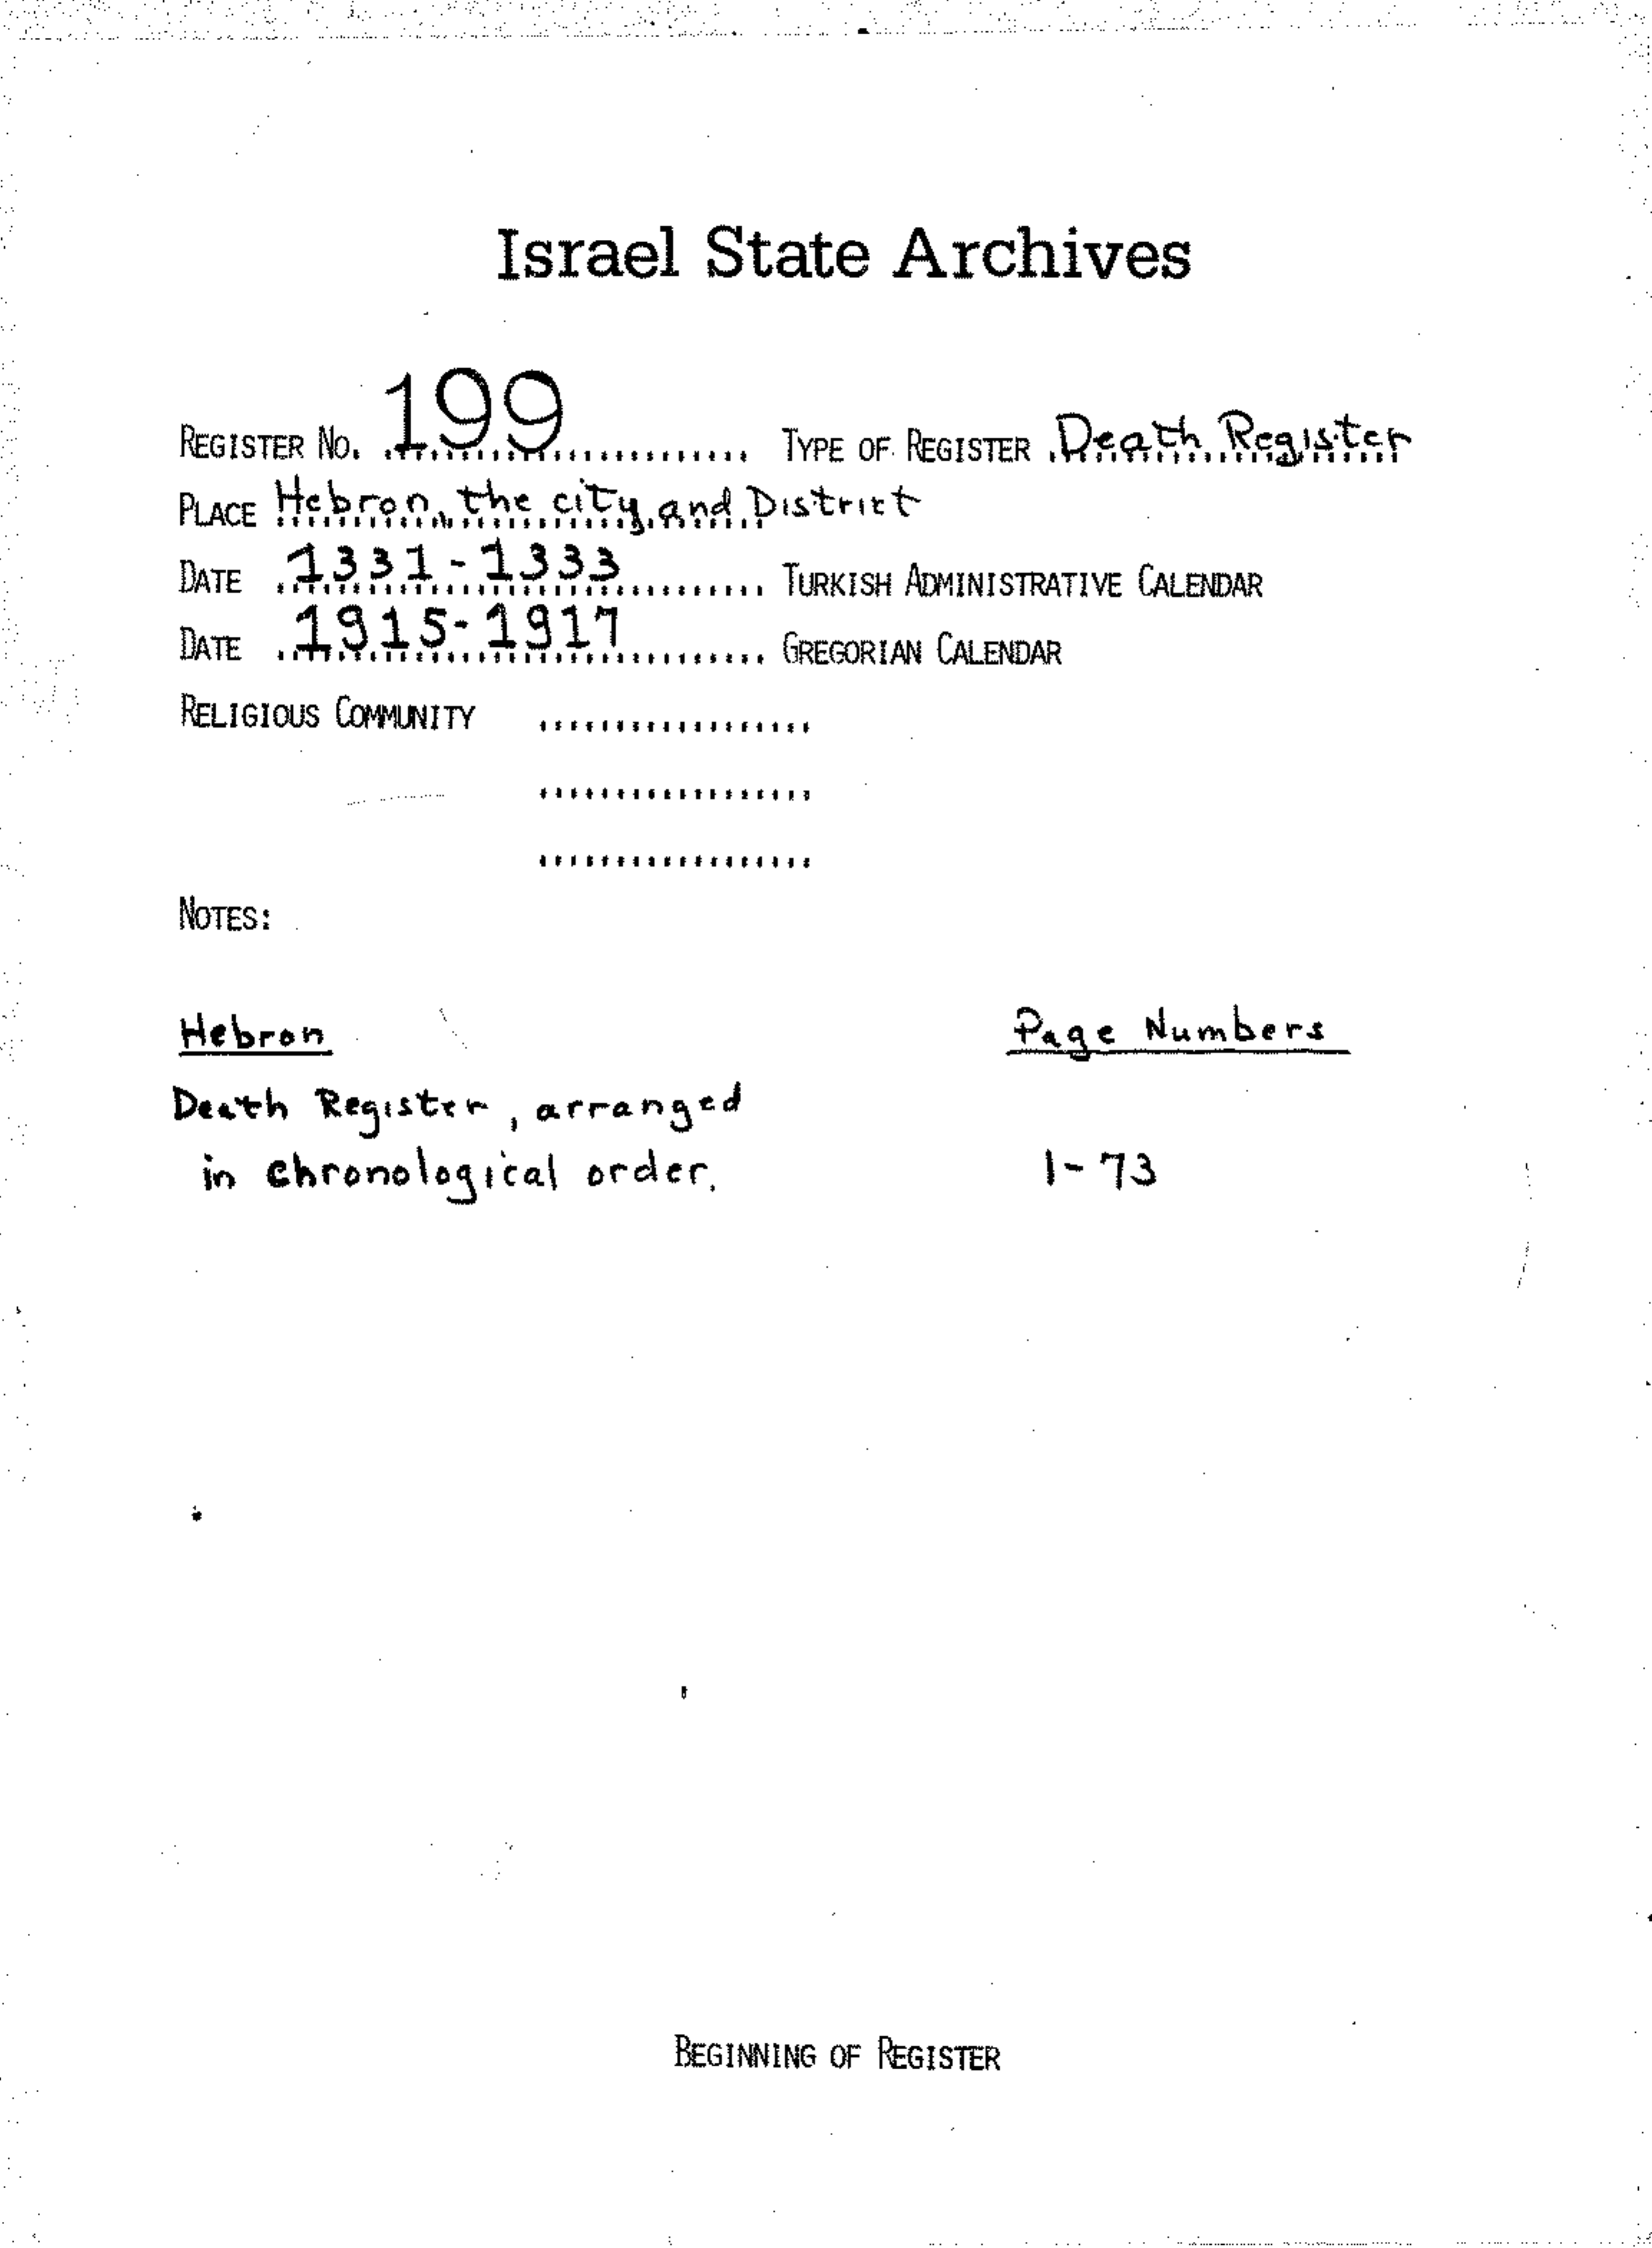 Israel State Archives
REGISTER NO. 199 TYPE OF REGISTER Death Register
PLACE Hebron, the city and District
DATE 1331-1333 TURKISH ADMINISTRATIVE CALENDAR
DATE 1915-1917 GREGORIAN CALENDAR
RELIGIOUS COMMUNITY
NOTES:
Hebron Page Numbers
Death Register, arranged
in chronological order. 1-73
BEGINNING OF REGISTER